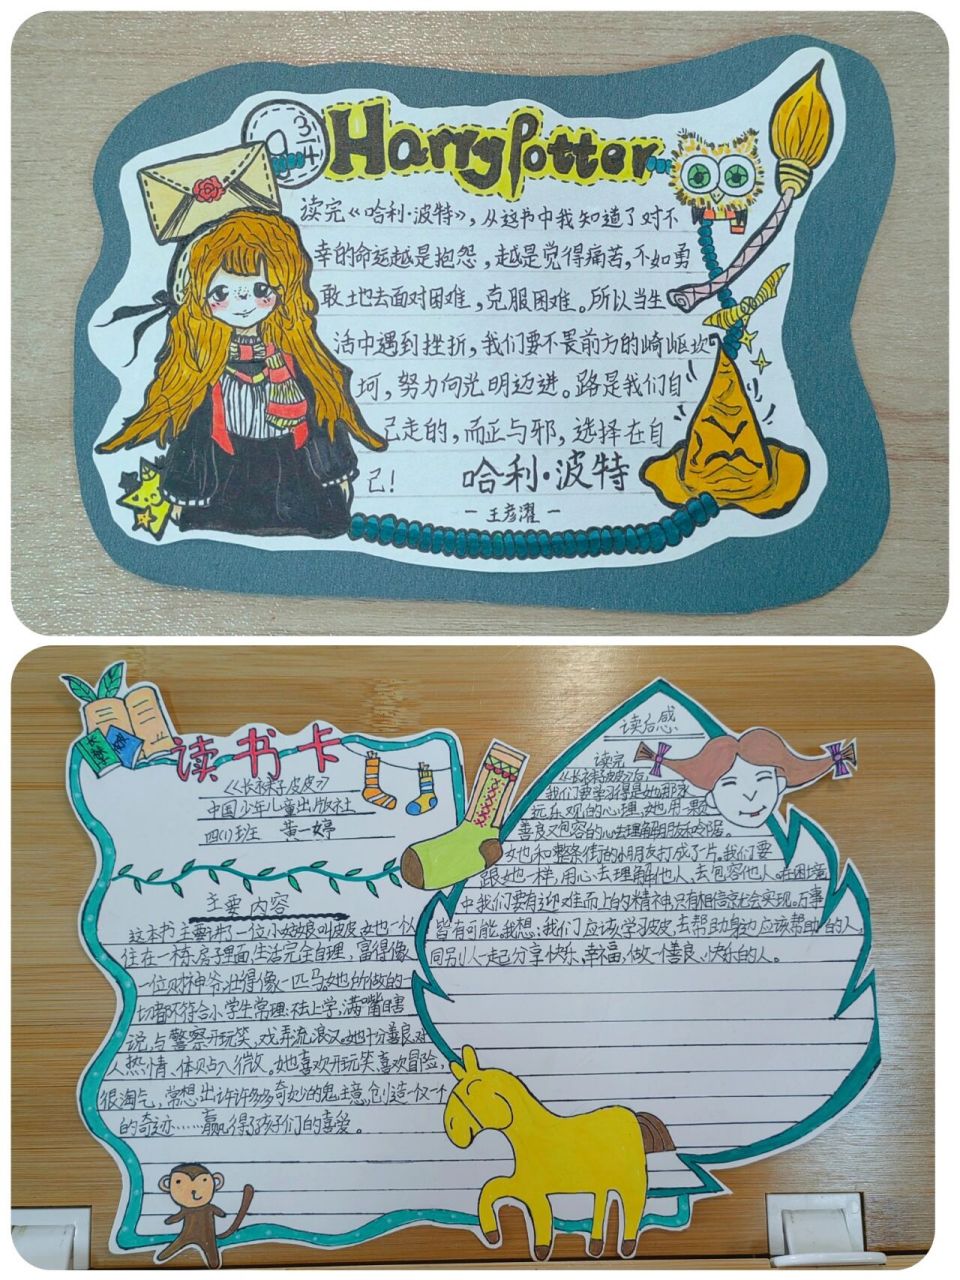 9 3/4
Harry Potter
读完《哈利·波特》，从这书中我知道了对不
幸的命运越是抱怨，越是觉得痛苦，不如勇
敢土地去面对困难，克服困难。所以当生
活中遇到挫折，我们要不畏前方的崎岖坎
坷，努力向光明迈进。路是我们自
己走的，而正与邪，选择在自
己！
哈利·波特
－王彦濯－
读书卡
《长袜子皮皮》
中国少年儿童出版社
四(1)班 黄一婷
主要内容
这本书主要讲了一位小姑娘叫皮皮，她也一个人
住在一栋房子里面，生活完全自理，富得像
一位财神爷，壮得像一匹马。她所做的一
切都不符合小学生常理：不去上学，满嘴瞎
说，与警察开玩笑，戏弄流浪汉。她十分善良，对
人热情、体贴入微。她喜欢开玩笑，喜欢冒险，
很淘气，常想出许许多多奇妙的鬼主意，创造一个个
的奇迹……赢得了孩子们的喜爱。
读后感
读完
《长袜子皮皮》后，
我们要学习得是她那永
远乐观的心理，她用一颗
善良又包容的心去理解朋友和邻居。
她和整条街的小朋友打成了片。我们要
跟她一样，用心去理解他人，去包容他人。在困境
中我们要有迎难而上的精神，只有相信就会实现。万事
皆有可能。我想：我们应该学习皮皮，去帮助身边应该帮助的人，
同别人一起分享快乐，幸福，做一个善良、快乐的人。